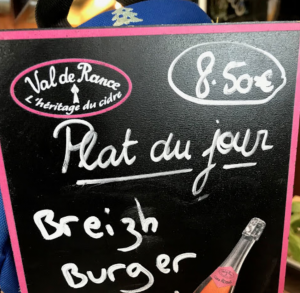 Val de Rance
L'héritage du cidre
8.50€
Plat du jour
Breizh
Burger